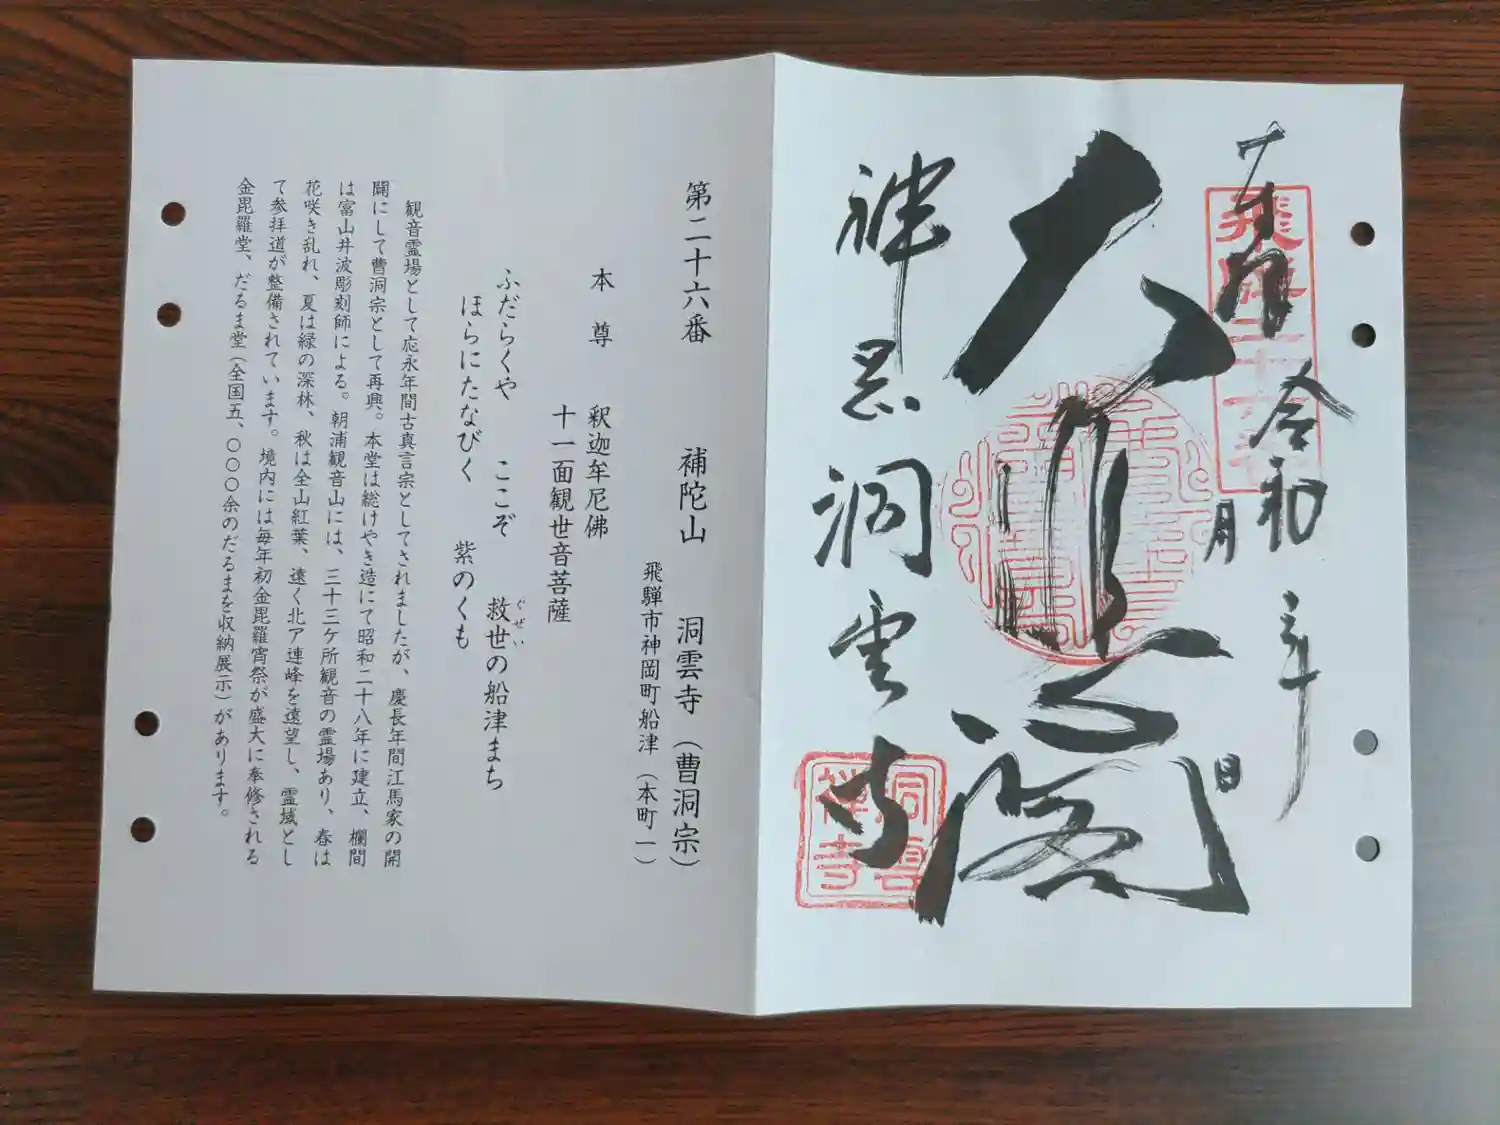 奉拝
飛騨二十六番
令和 年
月
日
大悲閣
神岡洞雲寺
洞雲禅寺
第二十六番 補陀山 洞雲寺（曹洞宗）
飛騨市神岡町船津（本町一）
本尊 釈迦牟尼佛
十一面観世音菩薩
ふだらくや ここぞ 救世の船津まち
ぐぜい
ほらにたなびく 紫のくも
観音霊場として応永年間古真言宗としてされましたが、慶長年間江馬家の開
闢にして曹洞宗として再興。本堂は総けやき造にて昭和二十八年に建立、欄間
は富山井波彫刻師による。朝浦観音山には、三十三ケ所観音の霊場あり、春は
花咲き乱れ、夏は緑の深林、秋は全山紅葉、遠く北ア連峰を遠望し、霊域とし
て参拝道が整備されています。境内には毎年初金毘羅宵祭が盛大に奉修される
金毘羅堂、だるま堂（全国五、〇〇〇余のだるまを収納展示）があります。